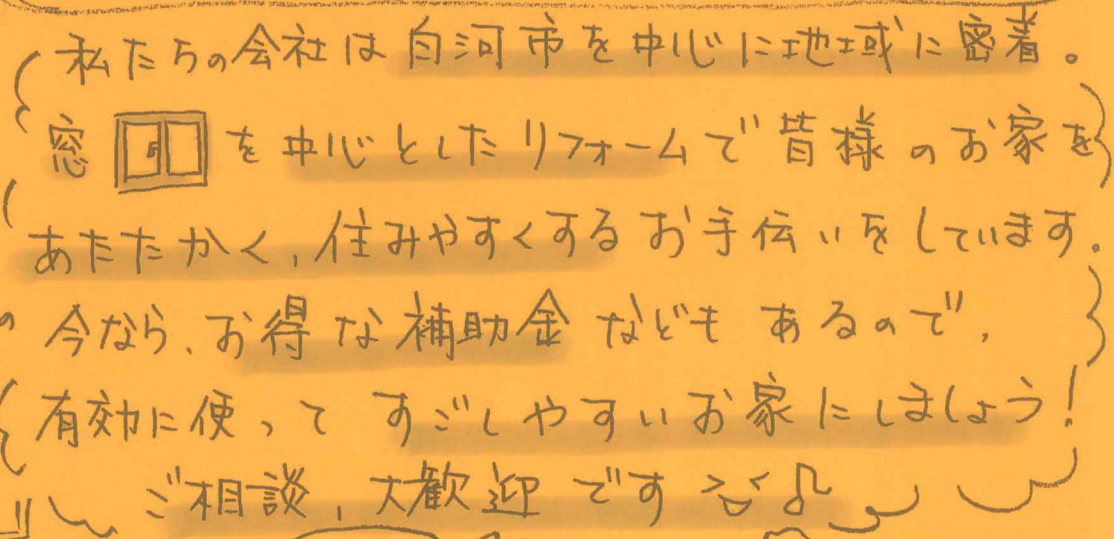 私たちの会社は白河市を中心に地域に密着。
窓を中心としたリフォームで皆様のお家を
あたたかく、住みやすくするお手伝いをしています。
今なら、お得な補助金などもあるので、
有効に使ってすごしやすいお家にしましょう!
ご相談、大歓迎です♪